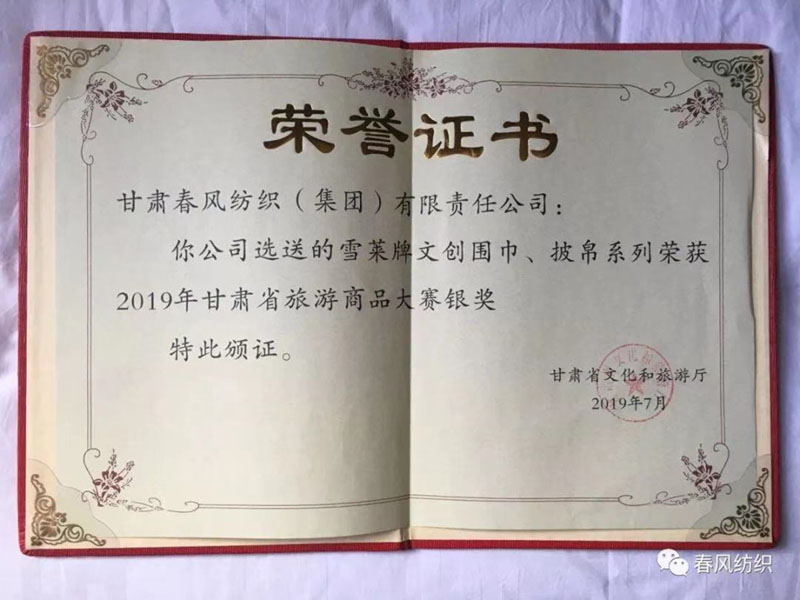 荣誉证书
甘肃春风纺织（集团）有限责任公司：
你公司选送的雪莱牌文创围巾、披帛系列荣获
2019年甘肃省旅游商品大赛银奖
特此颁证。
甘肃省文化和旅游厅
2019年7月
春风纺织